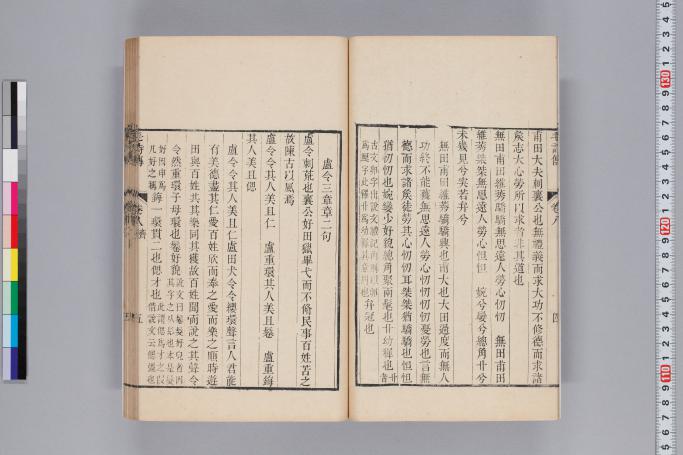 甫田大夫刺襄公也無禮義而求大功不修德而求諸
矦志大心勞所以求者非其道也
無田甫田維莠驕驕無思遠人勞心忉忉 無田甫田
維莠桀桀無思遠人勞心怛怛 婉兮孌兮總角丱兮
未幾見兮突若弁兮
無田甫田維莠驕驕興也甫大也大田過度而無人
功終不能獲無思遠人勞心忉忉忉忉憂勞也言無
德而求諸矦徒勞其心忉忉耳桀桀猶驕驕也怛怛
猶忉忉也婉孌少好皃總角聚兩髦也丱幼穉也
弁冠也
毛詩傳
卷八
四
盧令三章章二句
盧令刺荒也襄公好田獵畢弋而不脩民事百姓苦之
故陳古以風焉
盧令令其人美且仁 盧重環其人美且鬈 盧重鋂
其人美且偲
盧令令其人美且仁盧田犬令令纓環聲言人君能
有美德盡其仁愛百姓欣而奉之愛而樂之順時遊
田與百姓共其樂同其獲故百姓聞而說之其聲令
令然重環子母環也鬈好皃
鋂一環貫二也偲才也
五